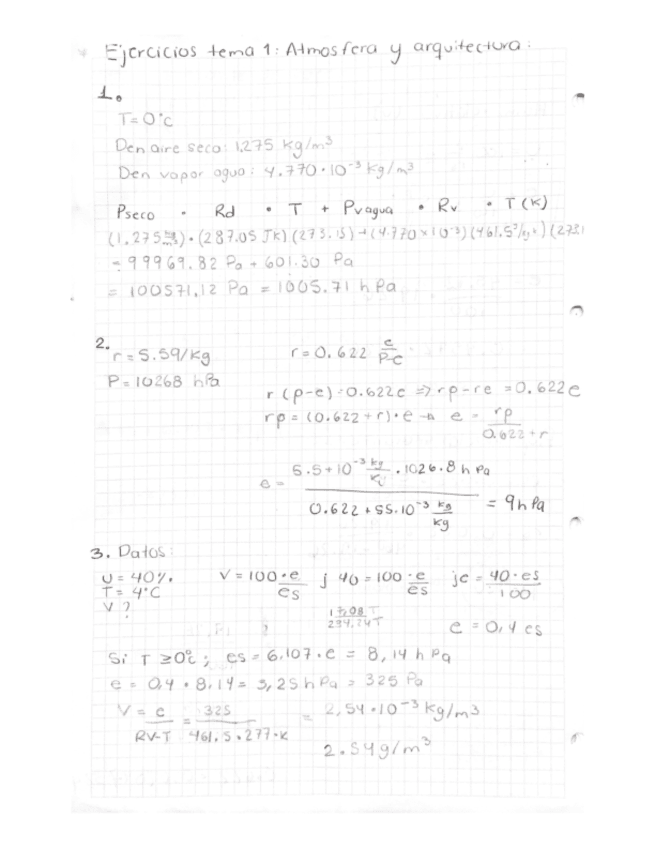 Ejercicios tema 1: Atmosfera y arquitectura:
1.
T=0°c
Den aire seco: 1,275 kg/m³
Den vapor agua: 4.770·10⁻³ kg/m³
Pseco · Rd · T + Pvagua · Rv · T(K)
(1.275 kg/m3)·(287.05 JK)(273.15)+(4.770×10⁻³)(461.5 J/kg k)(273.1
= 99969.82 Pa + 601.30 Pa
= 100571,12 Pa = 1005.71 hPa
2.
r=5.59/kg r=0.622 e/P-e
P=10268 hPa
r(p-e)=0.622e => rp-re=0.622e
rp=(0.622+r)·e → e = rp/0.622+r
e = 5.5+10⁻³ kg/kg · 1026.8 hPa / 0.622+55.10⁻³ kg/kg = 9hPa
3. Datos:
U=40%. V=100·e/es j 40=100·e/es je=40·es/100
T=4°C
V?
17,08T/234,24T e=0,4es
Si T≥0°c; es=6.107·e = 8,14 hPa
e = 0,4·8.14= 3,25hPa= 325 Pa
V=e/RV-T=325/461.5·277·K = 2,54·10⁻³kg/m3
2.54g/m³